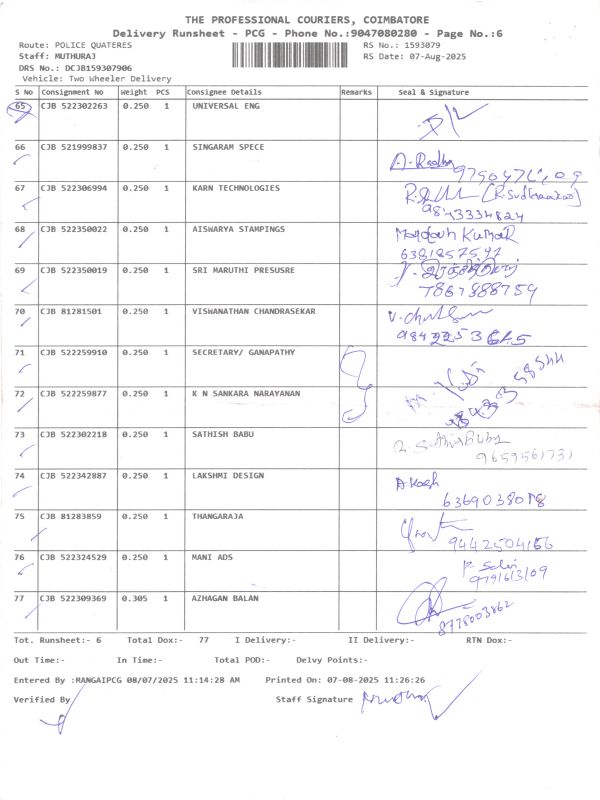 THE PROFESSIONAL COURIERS, COIMBATORE
Delivery Runsheet - PCG - Phone No.:9047080280 - Page No.:6
Route: POLICE QUATERES RS No.: 1593079
Staff: MUTHURAJ RS Date: 07-Aug-2025
DRS No.: DCJB159307906
Vehicle: Two Wheeler Delivery
S No Consignment No Weight PCS Consignee Details Remarks Seal & Signature
65 CJB 522302263 0.250 1 UNIVERSAL ENG
66 CJB 521999837 0.250 1 SINGARAM SPECE
A. Radha
67 CJB 522306994 0.250 1 KARN TECHNOLOGIES
68 CJB 522350022 0.250 1 AISWARYA STAMPINGS
KUMAR
69 CJB 522350019 0.250 1 SRI MARUTHI PRESUSRE
70 CJB 81281501 0.250 1 VISWANATHAN CHANDRASEKAR
71 CJB 522259910 0.250 1 SECRETARY/ GANAPATHY
72 CJB 522259877 0.250 1 K N SANKARA NARAYANAN
73 CJB 522302218 0.250 1 SATHISH BABU
9659561731
74 CJB 522342887 0.250 1 LAKSHMI DESIGN
Akash
75 CJB 81283859 0.250 1 THANGARAJA
9442504166
76 CJB 522324529 0.250 1 MANI ADS
77 CJB 522309369 0.305 1 AZHAGAN BALAN
8778003862
Tot. Runsheet:- 6 Total Dox:- 77 I Delivery:- II Delivery:- RTN Dox:-
Out Time:- In Time:- Total POD:- Delvy Points:-
Entered By :MANGAIPCG 08/07/2025 11:14:28 AM Printed On: 07-08-2025 11:26:26
Verified By Staff Signature